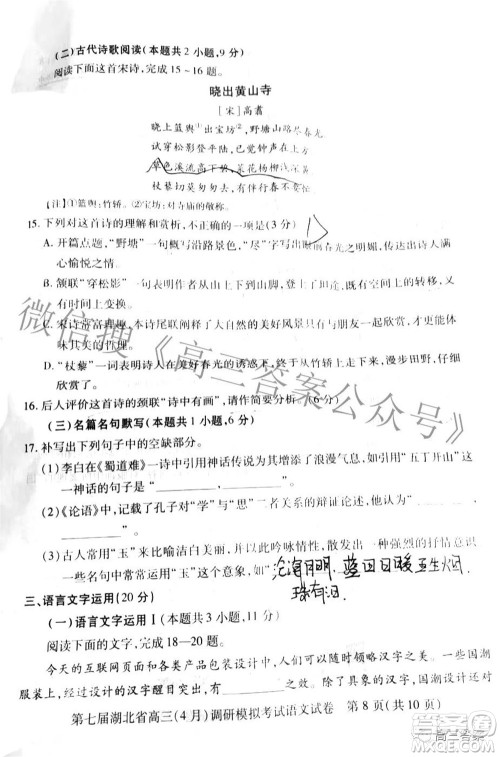 (二)古代诗歌阅读(本题共2小题,9分)
阅读下面这首宋诗,完成15~16题。
晓出黄山寺
[宋]高翥
晓上篮舆①出宝坊②,野塘山路尽春光。
试穿松影登平陆,已觉钟声在上方。
草色溪流高下碧,菜花杨柳浅深黄。
杖藜切莫匆匆去,有伴行春不要忙。
[注]①篮舆:竹轿。②宝坊:对寺庙的敬称。
15.下列对这首诗的理解和赏析,不正确的一项是(3分)
A.开篇点题,“野塘”一句概写沿路景色,“尽”字写出眼前春光之明媚,传达内
心愉悦之情。
B.颔联“穿松影”一句表明作者从山上到山下,不仅有空间的转移,又
有时间上变换。
C.宋诗常富理趣,本诗尾联阐释了大自然的美好风景只有与朋友共享,才能体
味其美的哲理。
D.“杖藜”表明诗人在美好春光的诱惑下,从竹轿上下来,漫步田野,仔细
欣赏了。
16.后人评价这首诗的颈联“诗中有画”,请作简要分析。(6分)
(三)名篇名句默写(本题共1小题,6分)
17.补写出下列句子中的空缺部分。
(1)李白在《蜀道难》一诗中引入神话增添了浪漫气息,如引用“五丁开山”这
一神话的句子是“________,________”。
(2)《论语》中,记载了孔子对“学”与“思”二者关系的辩证论述“________,
________”。
(3)古人常用“玉”来比喻洁白美丽,并以此吟咏情性,请写出含有“玉”的
一些名句中较有画面感且连续的两句“
沧海月明珠有泪
蓝田日暖玉生烟
三、语言文字运用(20分)
(一)语言文字运用Ⅰ(本题共3小题,11分)
阅读下面的文字,完成18—20题。
今天的互联网页面以及各种产品包装设计中,从国外引进的汉字图
形服装上,经过设计的汉字醒目________
第七届湖北省高三(4月)调研模拟考试语文试卷 第8页(共10页)
微信搜《高三答案公众号》
高三答案